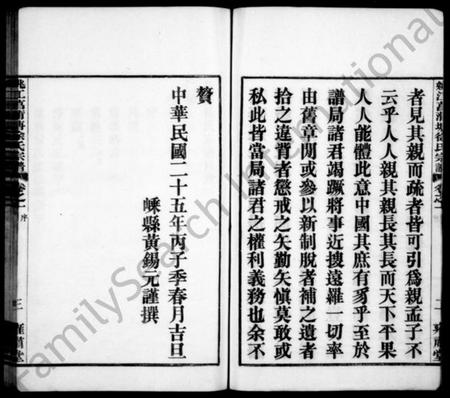 者見其親而疏者皆可引爲親孟子不
云乎人人親其親長其長而天下平果
人人能體此意中國其庶有豸乎至於
譜局諸君竭蹶將事近搜遠羅一切率
由舊章間或參以新制脫者補之遺者
拾之違背者懲戒之矢勤矢愼莫敢或
私此皆當局諸君之權利義務也余不
贅
中華民國二十五年丙子季春月吉旦
嵊縣黃錫元謹撰
姚江 徐氏宗譜
卷之一 序
三
FamilySearch International